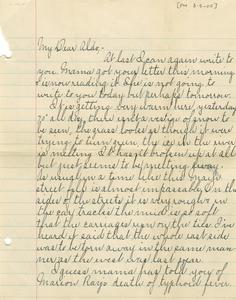 [PM 3-5-00]
My Dear Aldo:-
At last I can again write to
you. Mama got your letter this morning
& is now reading it. She is not going to
write to you today but perhaps tomorrow.
It is getting very warm here, yesterday
70° all day, there isn't a vestige of snow to
be seen, the grass looks as though it were
trying to turn green, the ice on the river
is melting & it hasn't broke up at all
but just seems to be melting away
As usual in a time like this Main
street hill is almost impassable. On the
sides of the streets it is very rough & in
the car tracks the mud is so soft
that the carriages go on the side. I've
heard it said that the whole east side
was to be torn away in the same man
ner as the west was last year.
I guess mama has told you of
Marion Rays death of typhoid fever.